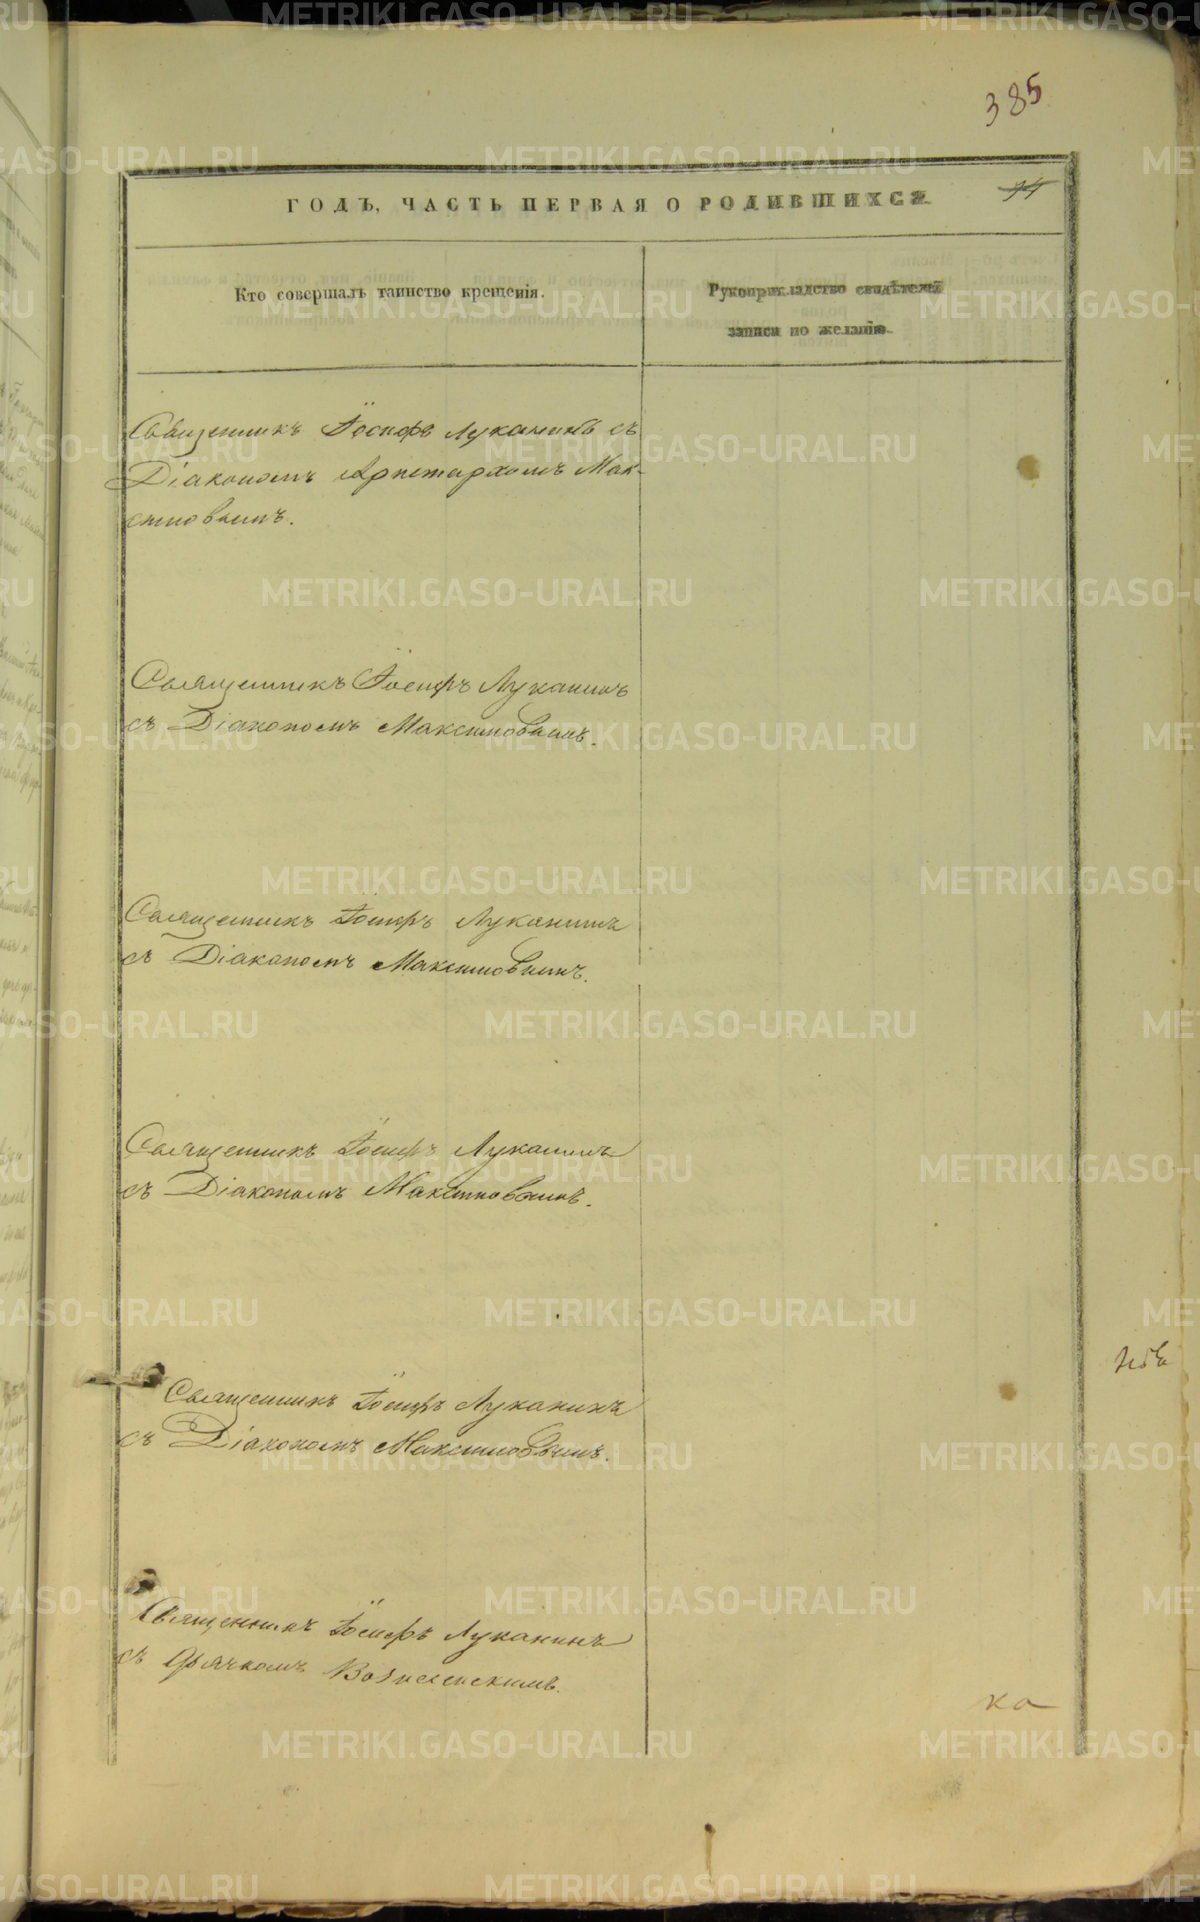 385
ГОДЪ, ЧАСТЬ ПЕРВАЯ О РОДИВШИХСЯ
Кто совершалъ таинство крещенія.
Рукоприкладство свидѣтелей
записи по желанію.
Священникъ Іосифъ Луканинъ съ
Діакономъ Аристархомъ Мак-
симовымъ.
Священникъ Іосифъ Луканинъ
съ Діакономъ Максимовымъ.
Священникъ Іосифъ Луканинъ
съ Діакономъ Максимовымъ.
Священникъ Іосифъ Луканинъ
съ Діакономъ Максимовымъ.
Священникъ Іосифъ Луканинъ
съ Діакономъ Максимовымъ.
Священникъ Іосифъ Луканинъ
съ Дьячкомъ Вознесенскимъ.
ка
METRIKI.GASO-URAL.RU